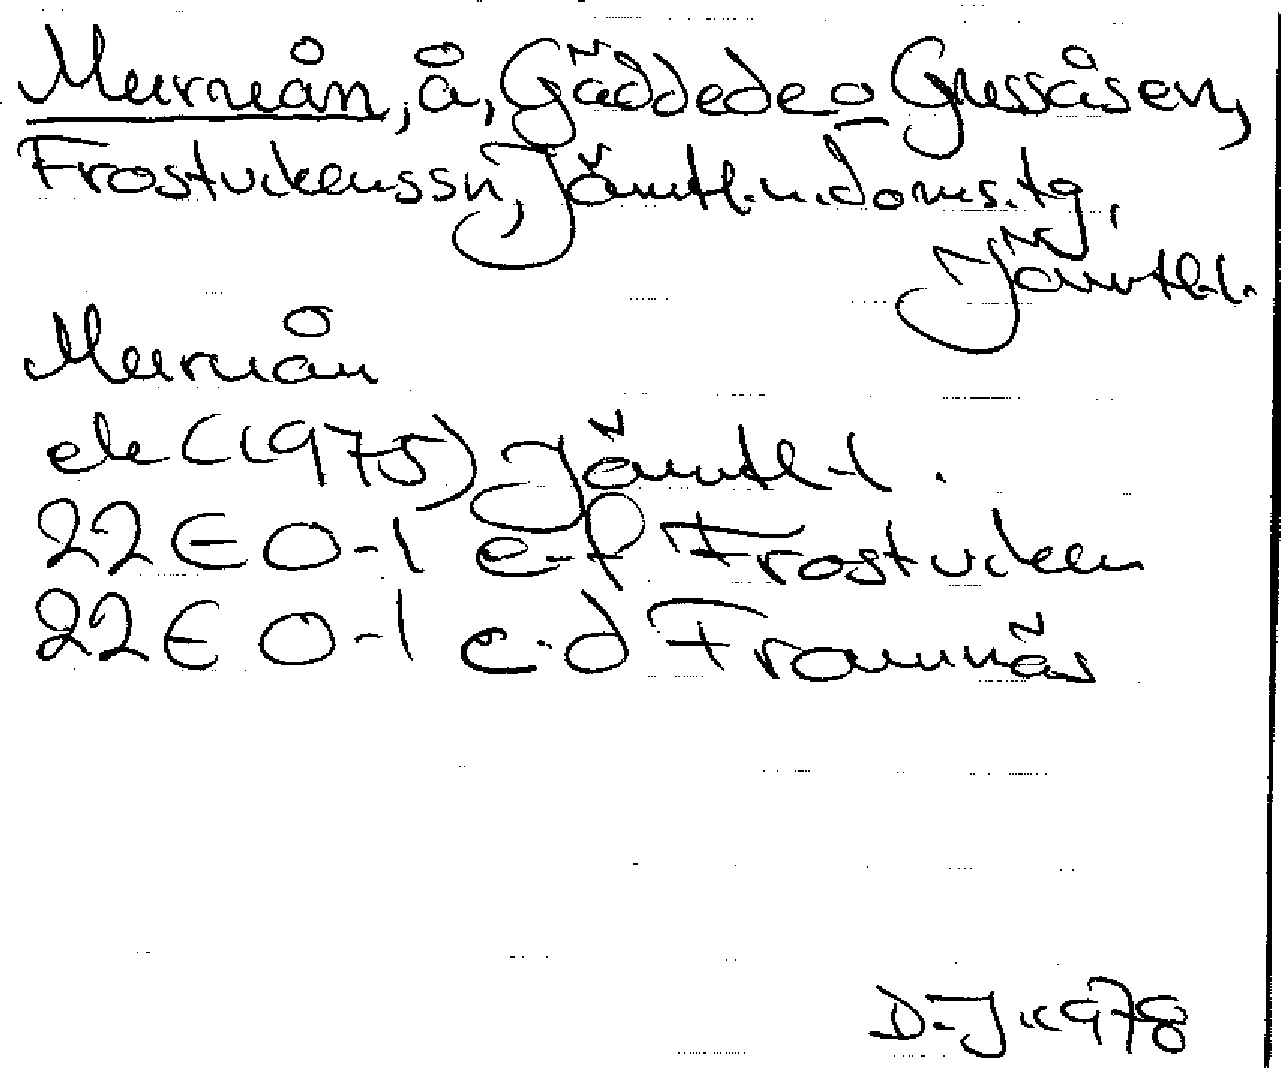 Murruån, å, Gäddede o Gussåsen,
Frostvikens sn, Jämtl.n.doms.tg,
Jämtl.l.
Murruån
ek (1975) Jämtl.l.
22E 0-1 e-f Frostviken
22E 0-1 c-d Framnäs
D-J 1978